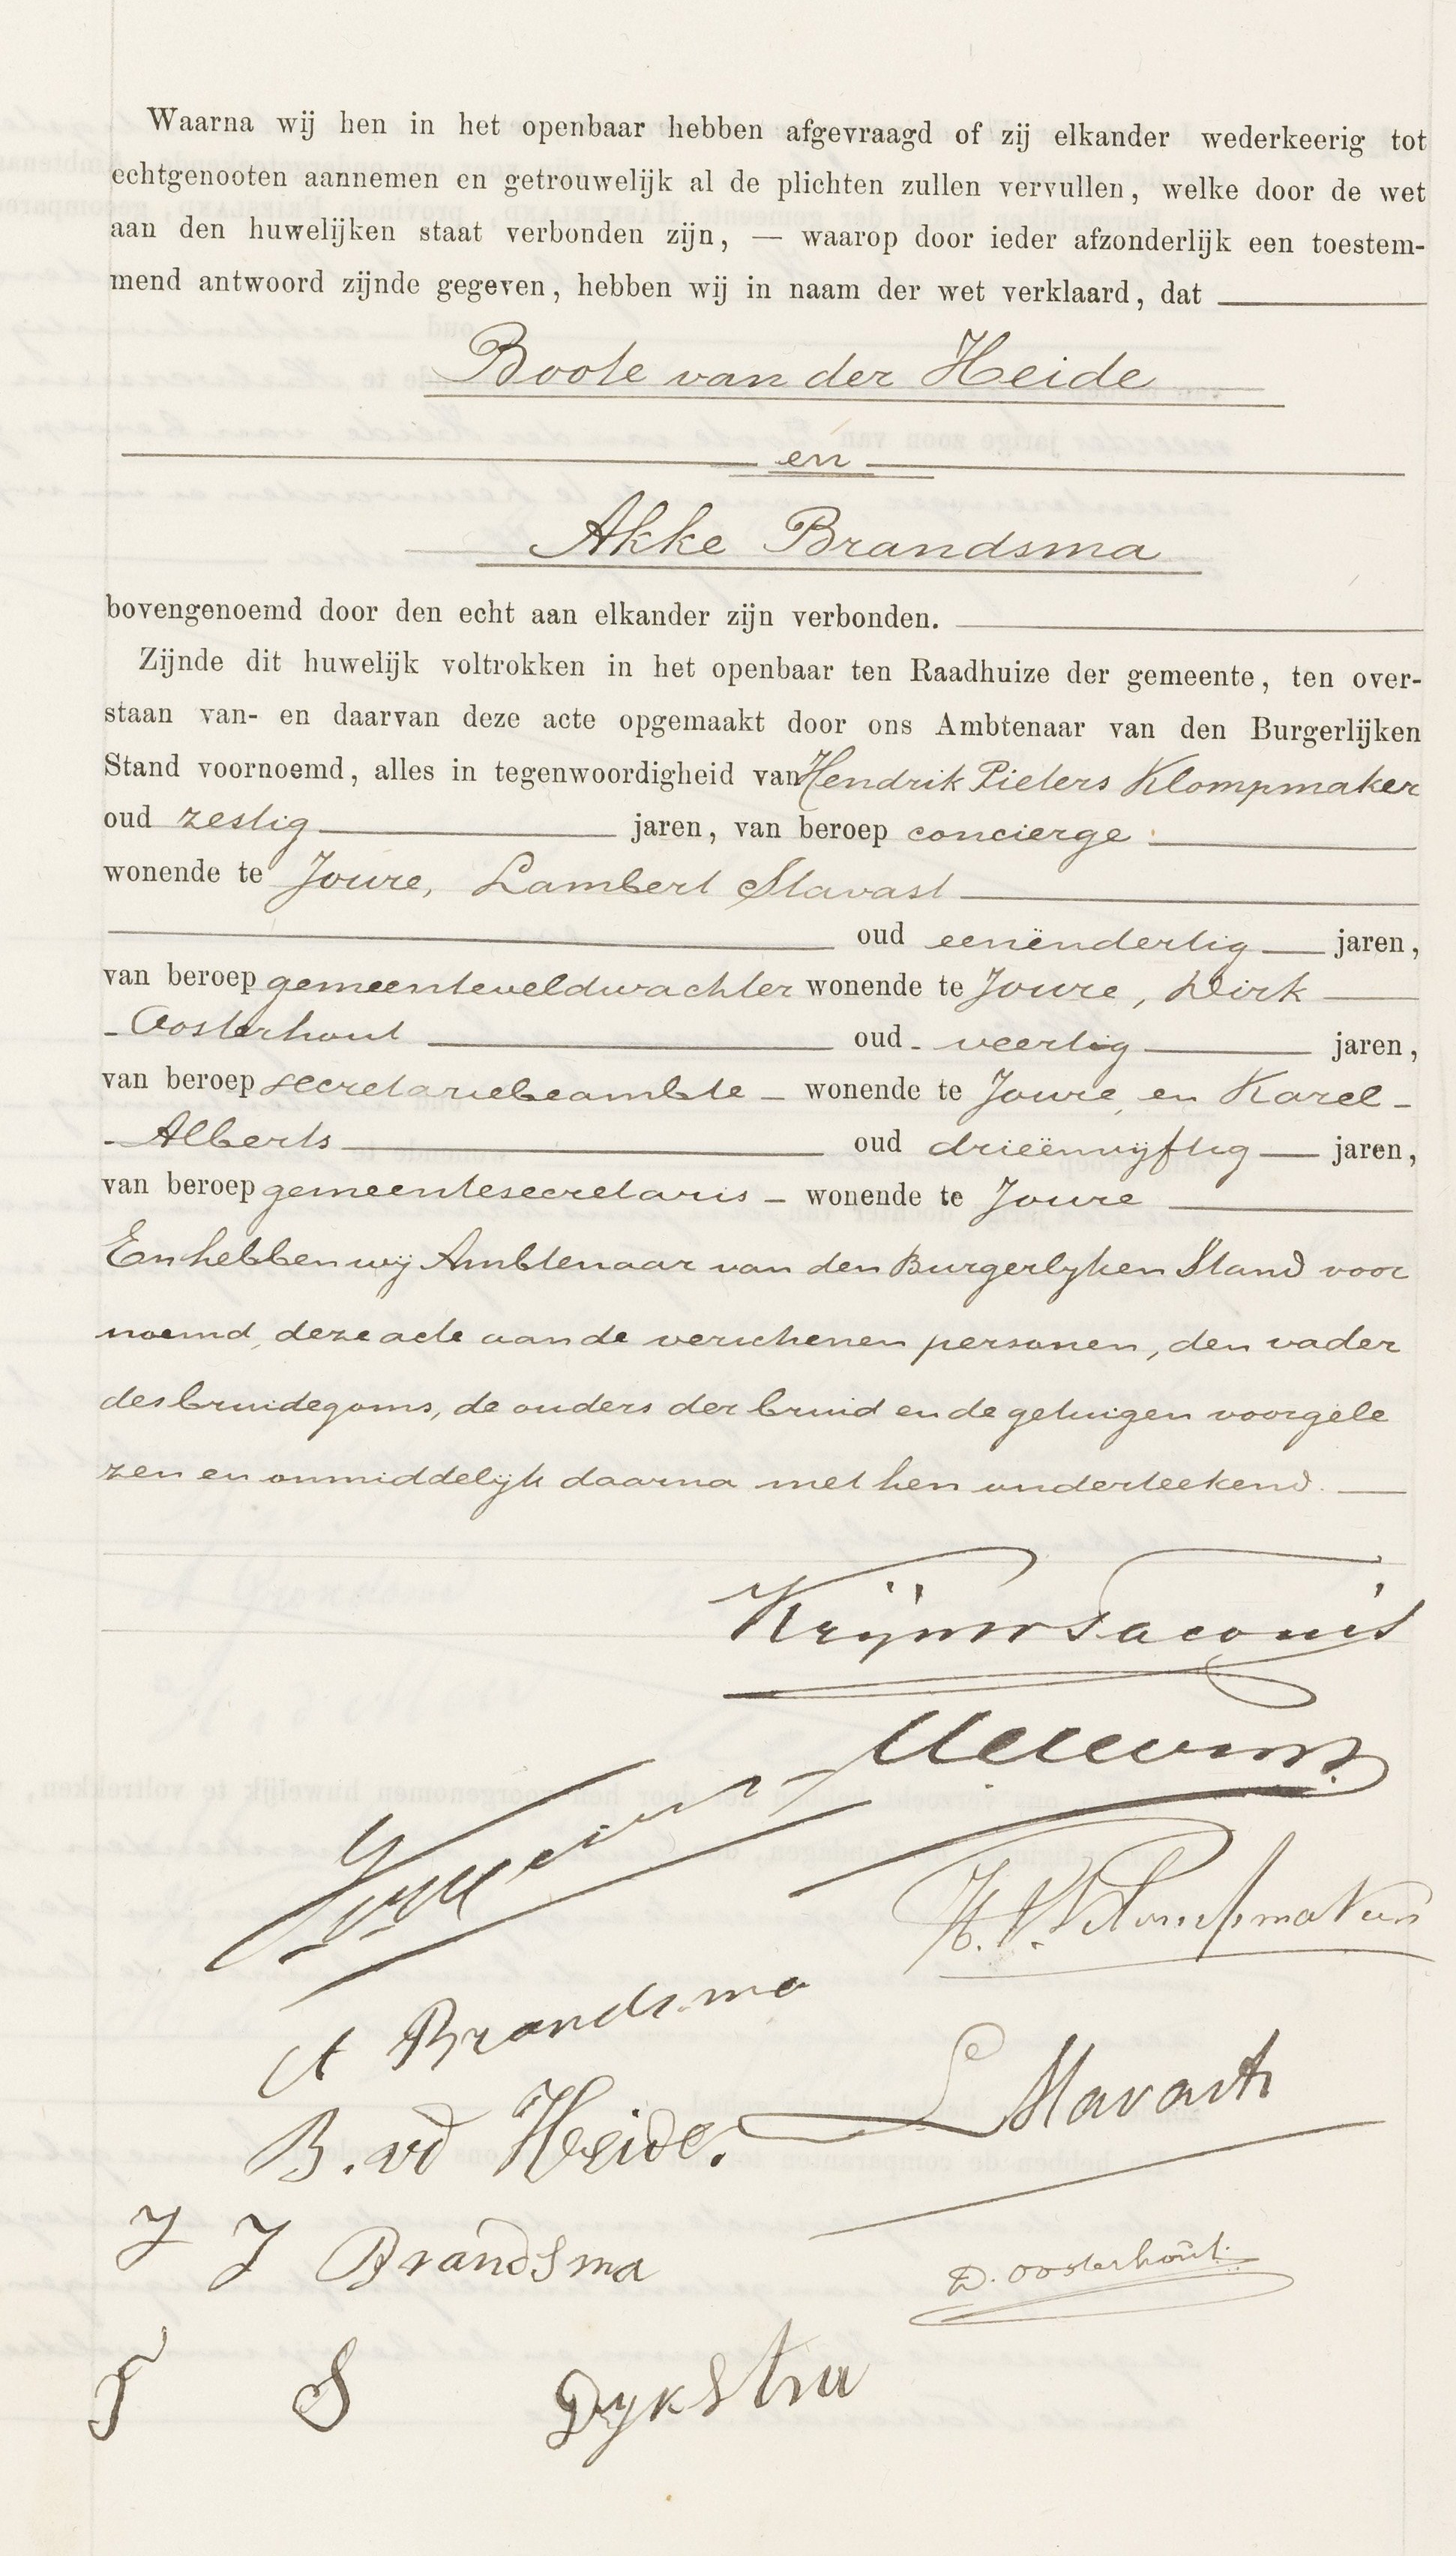 Waarna wij hen in het openbaar hebben afgevraagd of zij elkander wederkeerig tot
echtgenooten aannemen en getrouwelijk al de plichten zullen vervullen, welke door de wet
aan den huwelijken staat verbonden zijn, — waarop door ieder afzonderlijk een toestem-
mend antwoord zijnde gegeven, hebben wij in naam der wet verklaard, dat
Boote van der Heide
en
Akke Brandsma
bovengenoemd door den echt aan elkander zijn verbonden.
Zijnde dit huwelijk voltrokken in het openbaar ten Raadhuize der gemeente, ten over-
staan van- en daarvan deze acte opgemaakt door ons Ambtenaar van den Burgerlijken
Stand voornoemd, alles in tegenwoordigheid van Hendrik Pieters Klompmaker
oud zestig jaren, van beroep concierge
wonende te Joure, Lambert Stavast
oud eenëndertig jaren,
van beroep gemeenteveldwachter wonende te Joure, Dirk
Oosterhout oud veertig jaren,
van beroep secretariebeambte wonende te Joure en Karel
Alberts oud drieënvijftig jaren,
van beroep gemeentesecretaris wonende te Joure
En hebben wij Ambtenaar van den Burgerlyken Stand voor
noemd, deze acte aan de verschenen personen, den vader
des bruidegoms, de ouders der bruid en de getuigen voorgele
zen en onmiddelijk daarna met hen onderteekend.
Krijns Taconis
H. P. Klompmaker
A Brandsma
L Stavast
B. vd Heide.
J J Brandsma
D. Oosterhout.
T S Dykstra